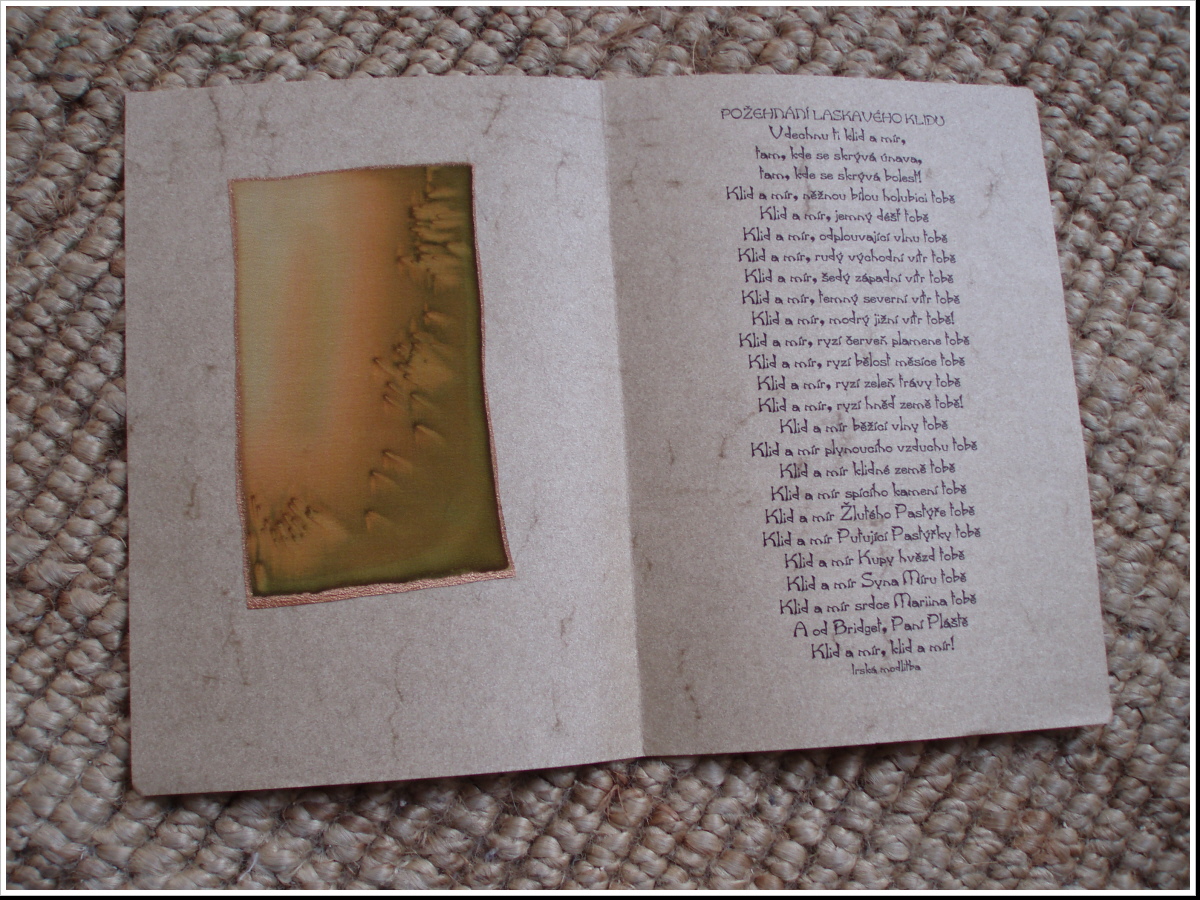 POŽEHNÁNÍ LASKAVÉHO KLIDU
Vdechnu ti klid a mír,
tam, kde se skrývá únava,
tam, kde se skrývá bolest!
Klid a mír, něžnou bílou holubici tobě
Klid a mír, jemný déšť tobě
Klid a mír, odplouvající vlnu tobě
Klid a mír, rudý východní vítr tobě
Klid a mír, šedý západní vítr tobě
Klid a mír, temný severní vítr tobě
Klid a mír, modrý jižní vítr tobě!
Klid a mír, ryzí červeň plamene tobě
Klid a mír, ryzí bělost měsíce tobě
Klid a mír, ryzí zeleň trávy tobě
Klid a mír, ryzí hněď země tobě!
Klid a mír běžící vlny tobě
Klid a mír plynoucího vzduchu tobě
Klid a mír klidné země tobě
Klid a mír spícího kamení tobě
Klid a mír Žlutého Pastýře tobě
Klid a mír Putující Pastýřky tobě
Klid a mír Kupy hvězd tobě
Klid a mír Syna Míru tobě
Klid a mír srdce Mariina tobě
A od Bridget, Paní Pláště
Klid a mír, klid a mír!
Irská modlitba